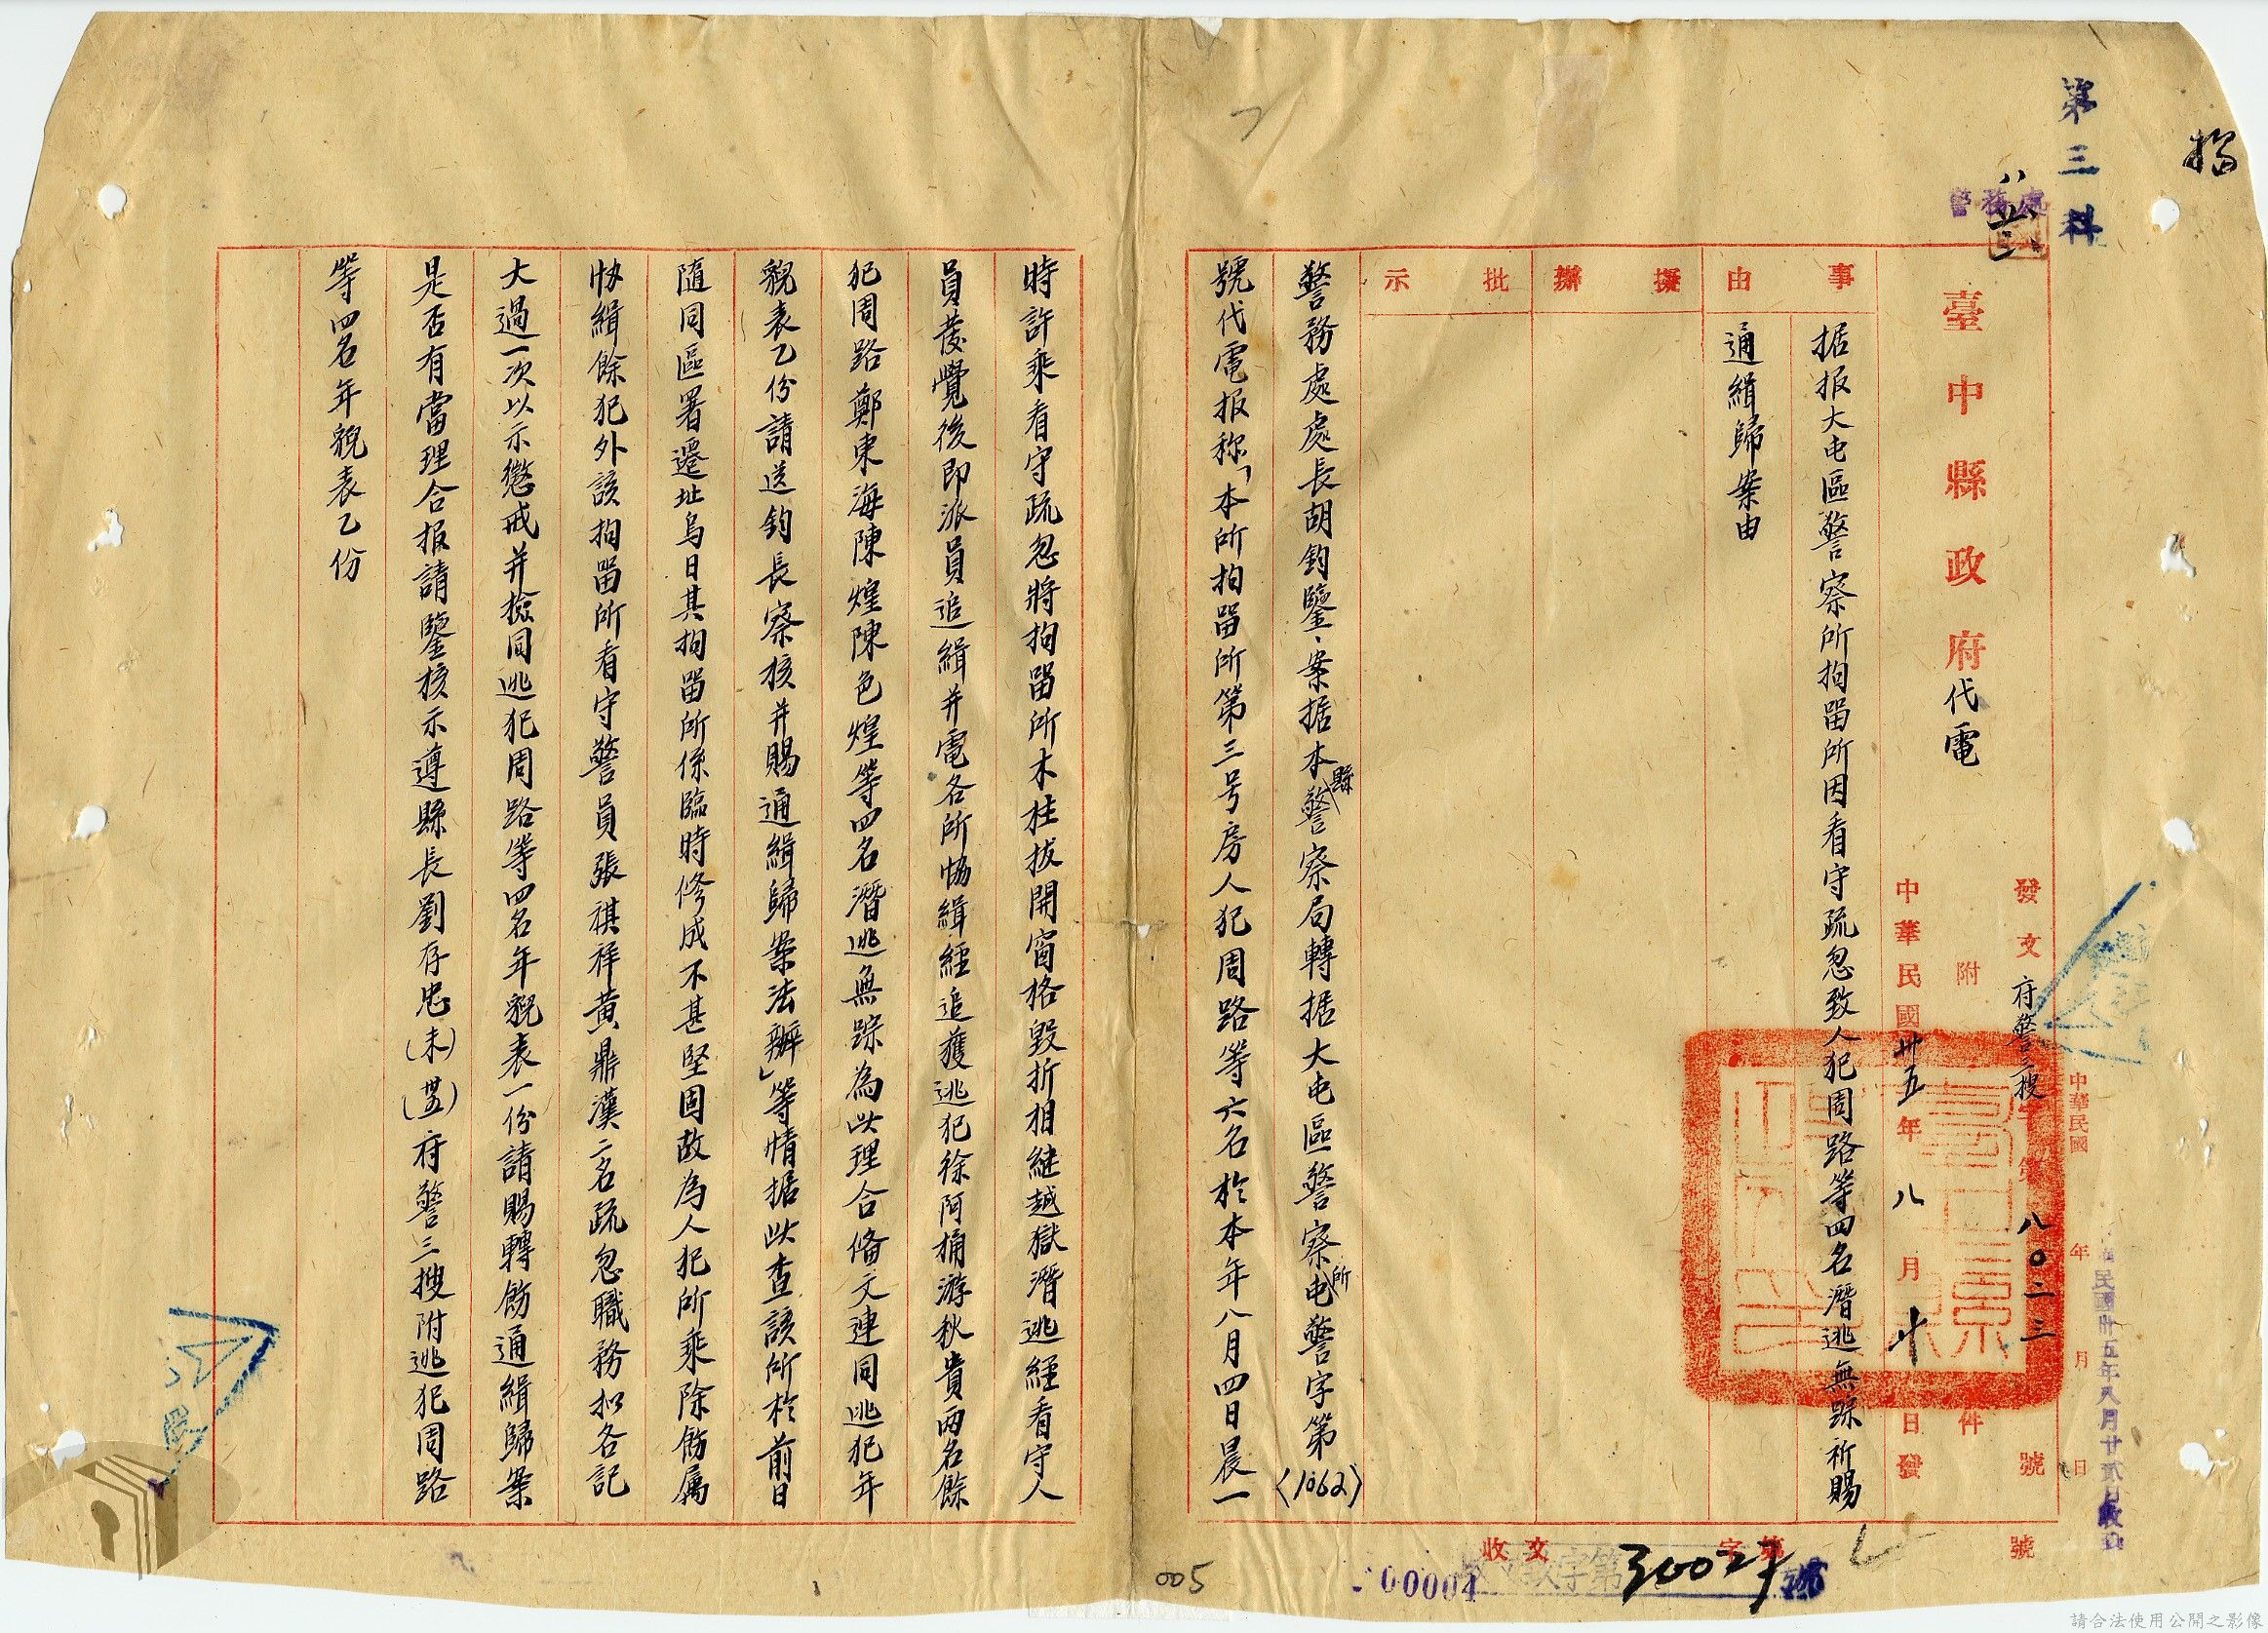 第三科
警務處
臺中縣政府代電
發文府警三搜字第八〇二三號
附件
中華民國卅五年八月廿日發
中華民國 年 月 日
民國卅五年八月廿貳日收
事由
据报大屯區警察所拘畱所因看守疏忽致人犯周路等四名潛逃無踪祈賜
通緝歸案由
擬辦
批示
警務處處長胡鈞鑒、案据本縣警察局轉据大屯區警察所屯警字第(1062)
號代電报称「本所拘畱所第三号房人犯周路等六名於本年八月四日晨一
時許乘看守疏忽將拘畱所木柱拔開窗格毀折相継越獄潛逃經看守人
員發覺後即派員追緝并電各所恊緝經追獲逃犯徐阿桶游秋貴両名餘
犯周路鄭東海陳煌陳色煌等四名潛逃無踪為此理合俻文連同逃犯年
貌表乙份請送鈞長察核并賜通緝歸案法辦」等情据此查該所於前日
隨同區署遷址烏日其拘畱所係臨時修成不甚堅固故為人犯所乘除飭属
恊緝餘犯外該拘畱所看守警員張祺祥黃鼎漢二名疏忽職務扣各記
大過一次以示懲戒并撿同逃犯周路等四名年貌表一份請賜轉飭通緝歸案
是否有當理合报請鑒核示遵縣長劉存忠(未)(  )府警三搜附逃犯周路
等四名年貌表乙份
收文 字第30027號
00004
005
請合法使用公開之影像